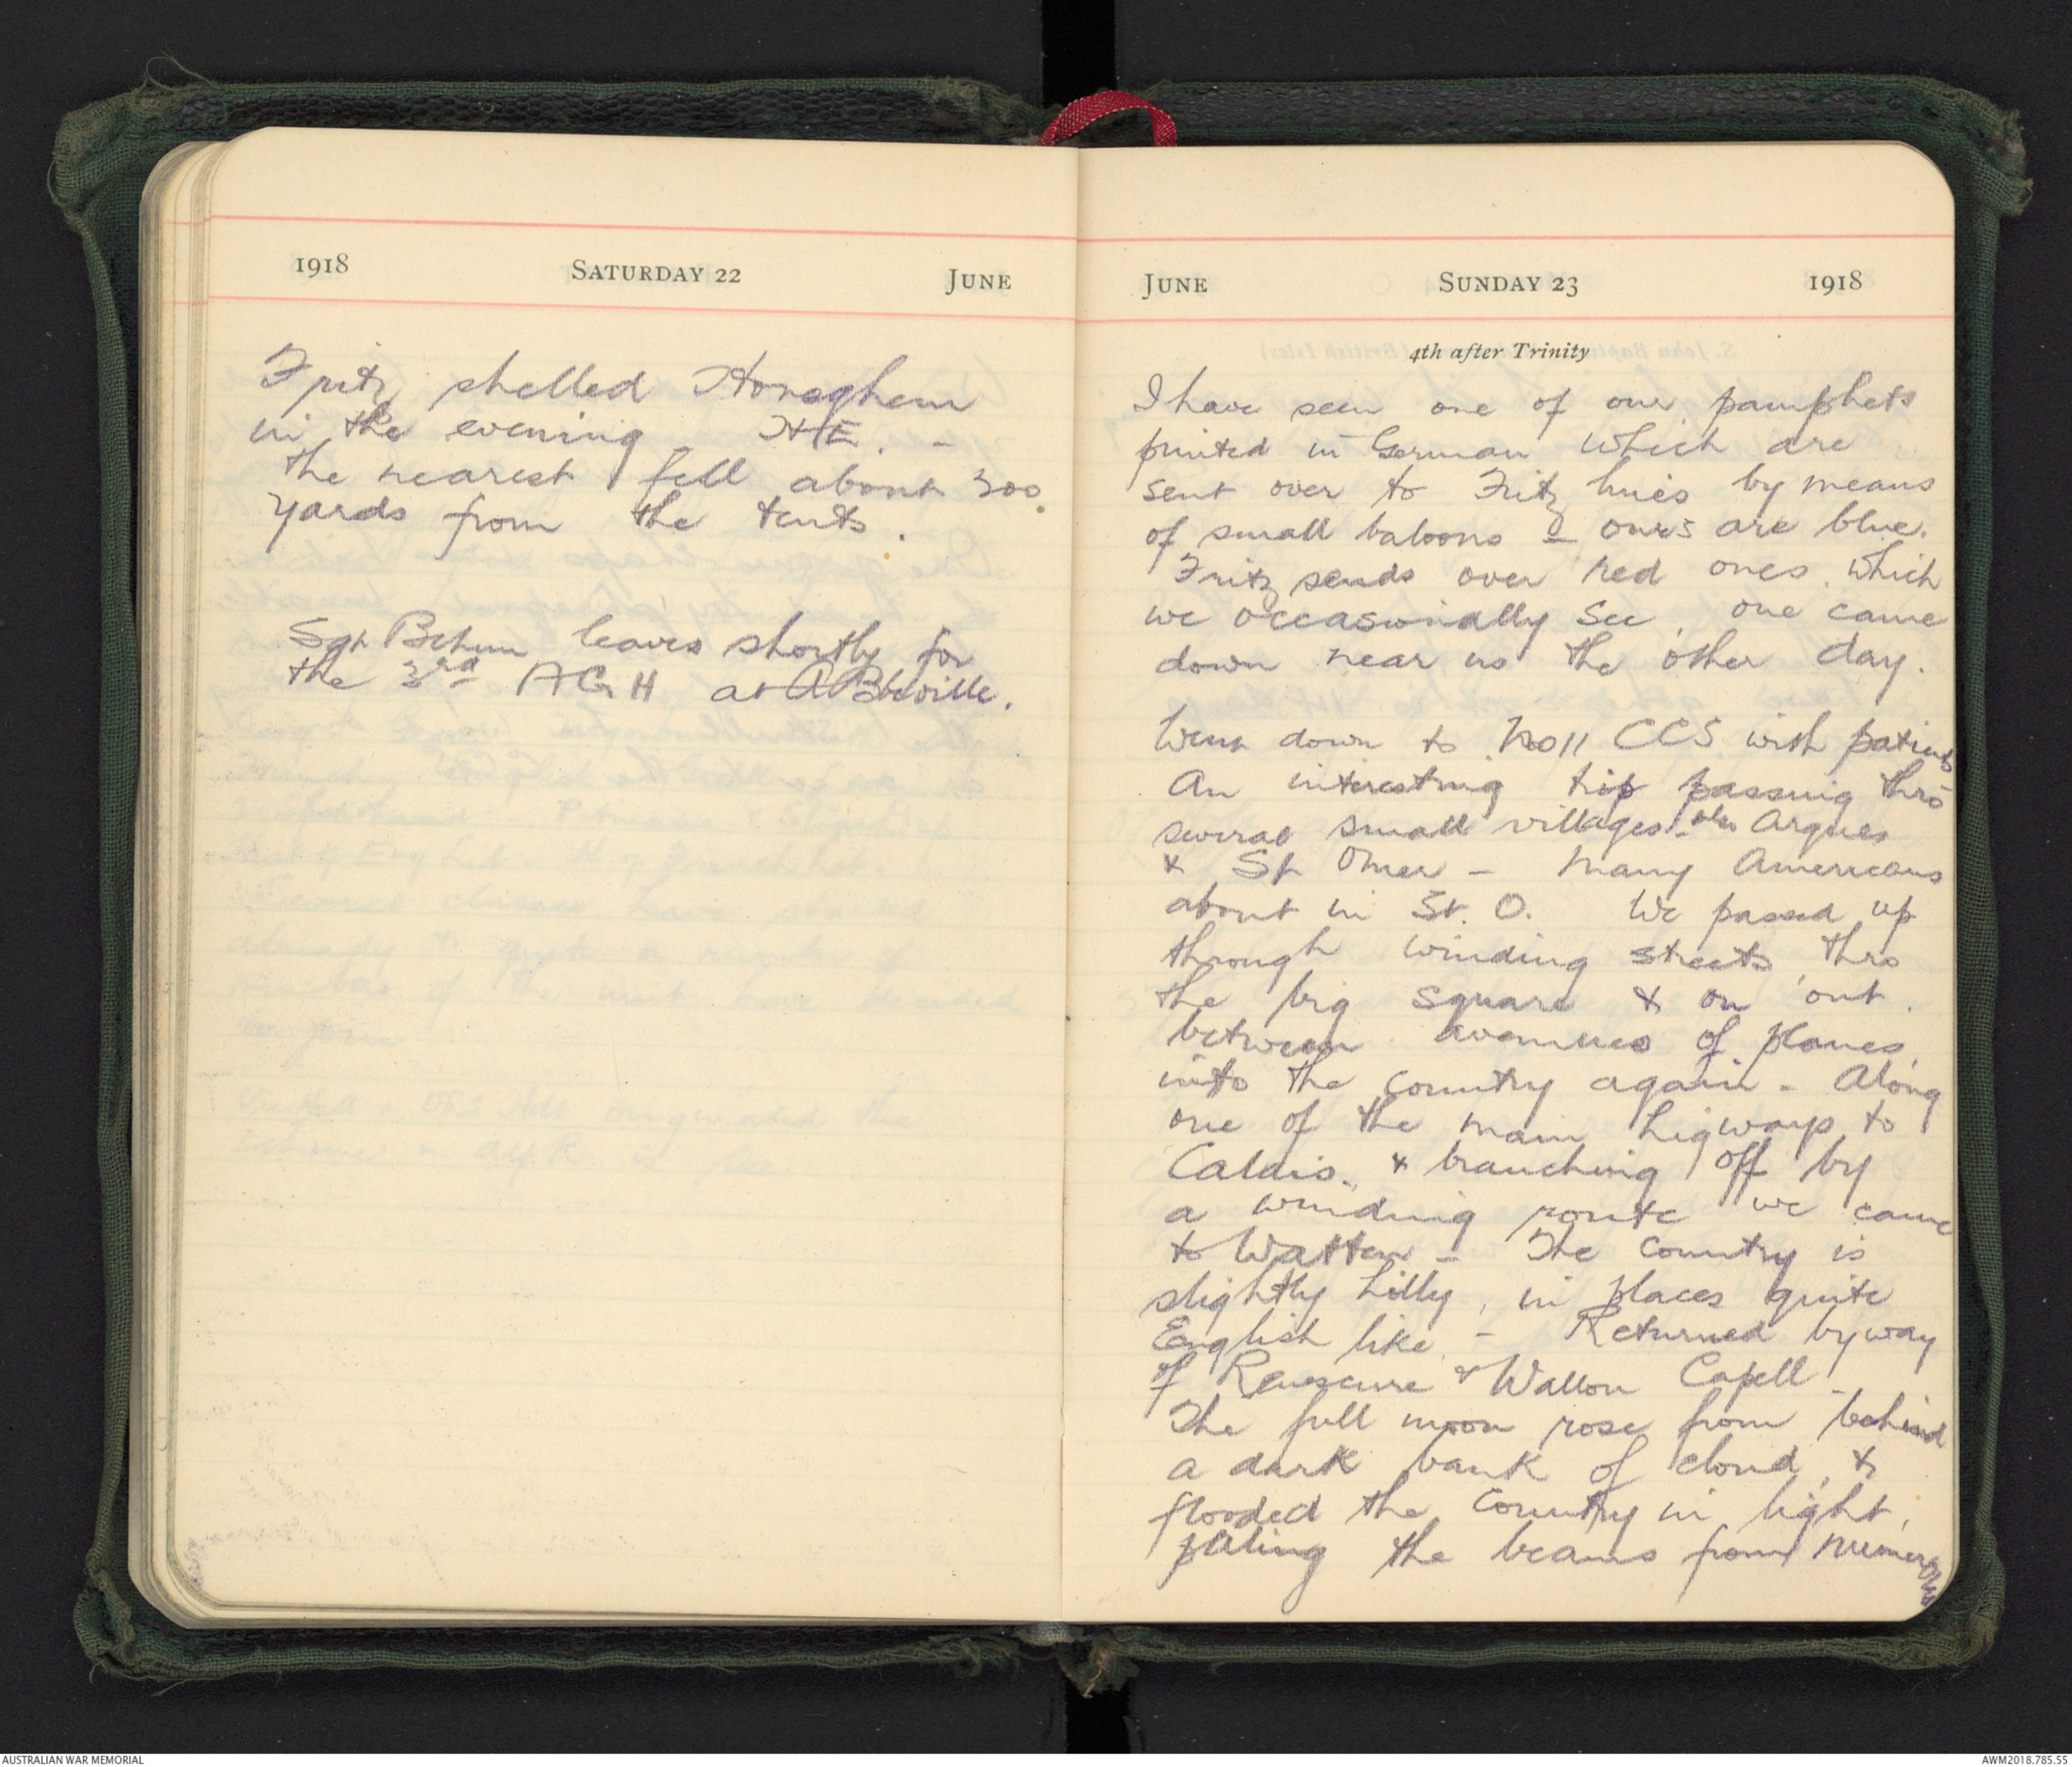 1918 SATURDAY 22 JUNE
Fritz shelled Honeghem
in the evening HE. -
the nearest fell about 300
yards from the tents.
Sgt leaves shortly for
the 3rd AGH at ABbeville.
JUNE SUNDAY 23 1918
4th after Trinity
I have seen one of our pamphets
printed in German which are
sent over to Fritz lines by means
of small baloons - ours are blue.
Fritz sends over red ones which
we occeasionally see, one came
down near us the other day.
Went down to No 11 CCS with patients
An interesting trip passing thro
several small villages - also Arques
& St Omer - Many Americans
about in St. O. We passed up
through winding streets, thro
the big square & on out.
between avenues of planes,
into the country again - Along
one of the main higways to
Calais. & branching off by
a winding route we came
to Watten - The country is
slightly hilly, in places quite
English like - Returned by way
of Renescure & Wallon Capell
The full moon rose from behind
a dark bank of cloud, &
flooded the country in light,
paling the beams from numerous
AUSTRALIAN WAR MEMORIAL
AWM2018.785.55